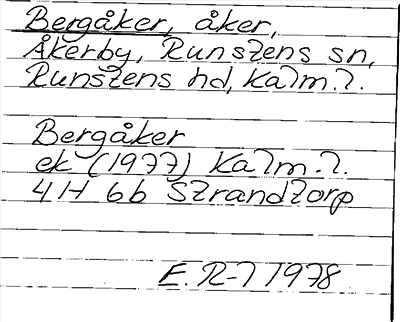 Bergåker, åker,
Åkerby, Runstens sn,
Runstens hd, Kalm. l.
Bergåker
ek (1977) Kalm. l.
4H 6b Strandtorp
E. R-l 1978